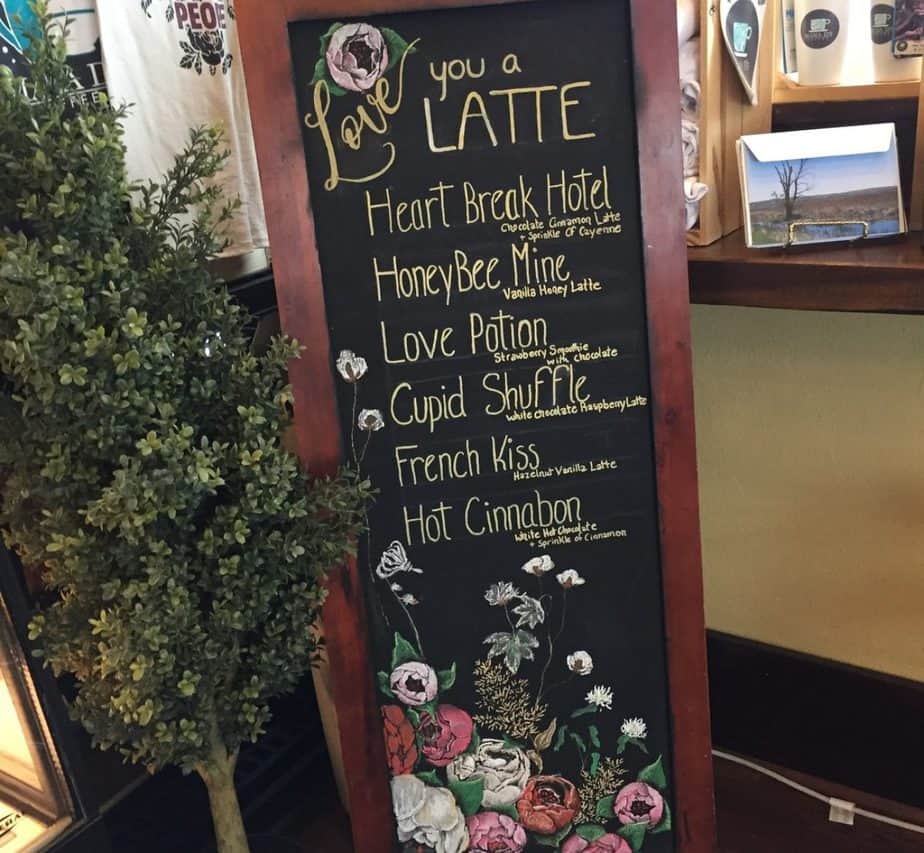 PEOE
Love you a
LATTE
Heart Break Hotel
Chocolate Cinnamon Latte
+ Sprinkle Of Cayenne
HoneyBee Mine
Vanilla Honey Latte
Love Potion
Strawberry Smoothie
with chocolate
Cupid Shuffle
White chocolate Raspberry Latte
French Kiss
Hazelnut Vanilla Latte
Hot Cinnabon
White Hot Chocolate
+ Sprinkle of Cinnamon